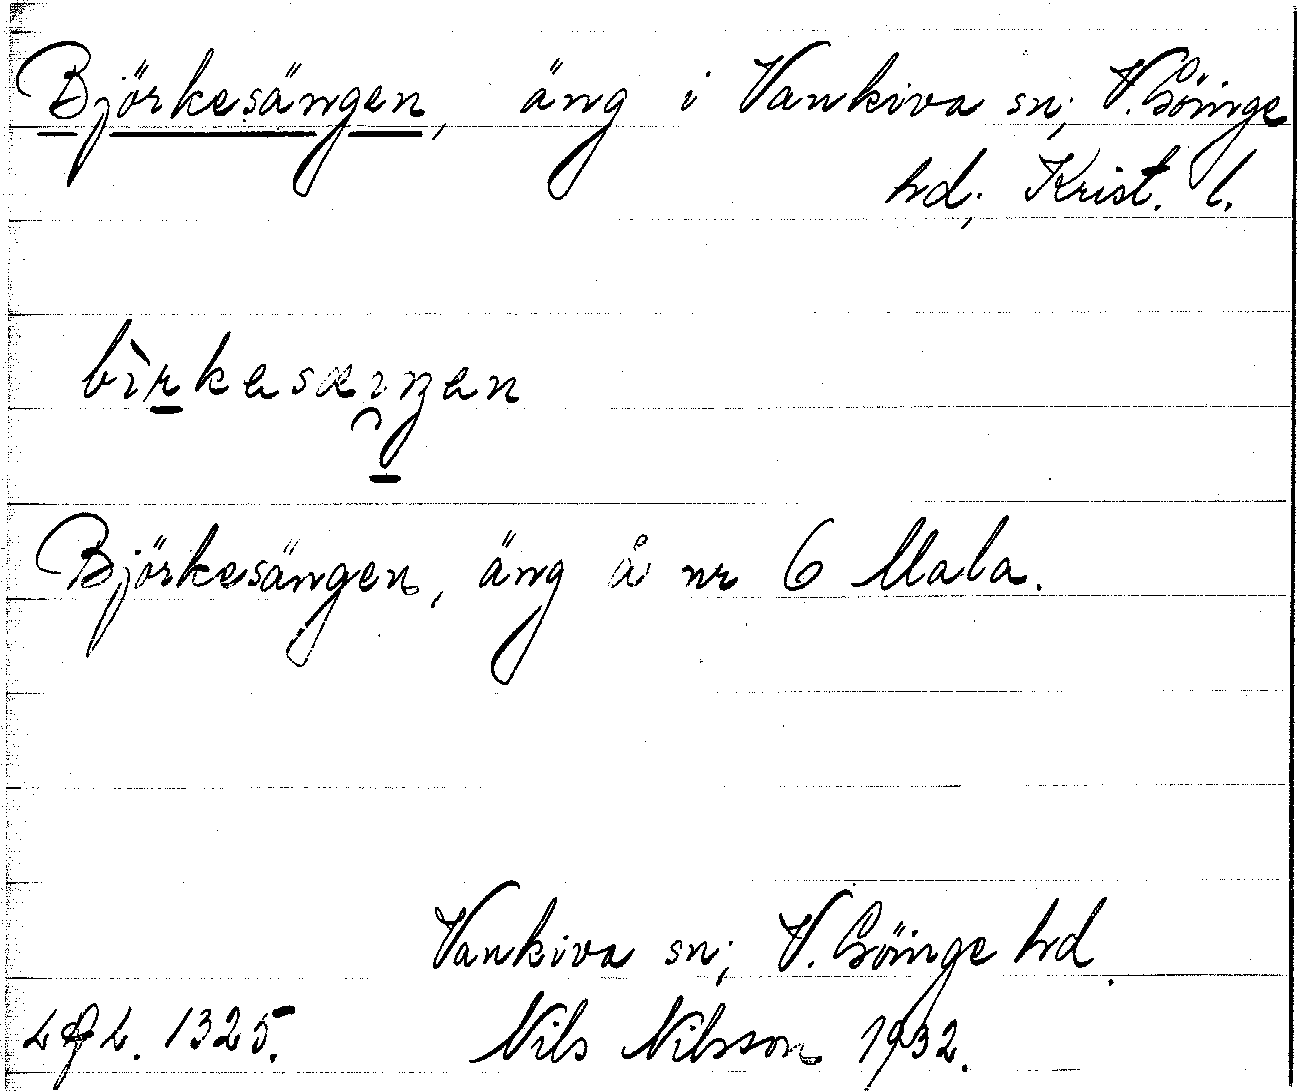 Björkesängen, äng i Vankiva sn; V. Göinge
hd; Krist. l.
bìrkesæŋen
Björkesängen, äng å nr 6 Mala.
Vankiva sn; V. Göinge hd.
1325.
Nils Nilsson 1932.